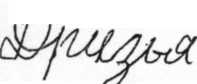 Друзья